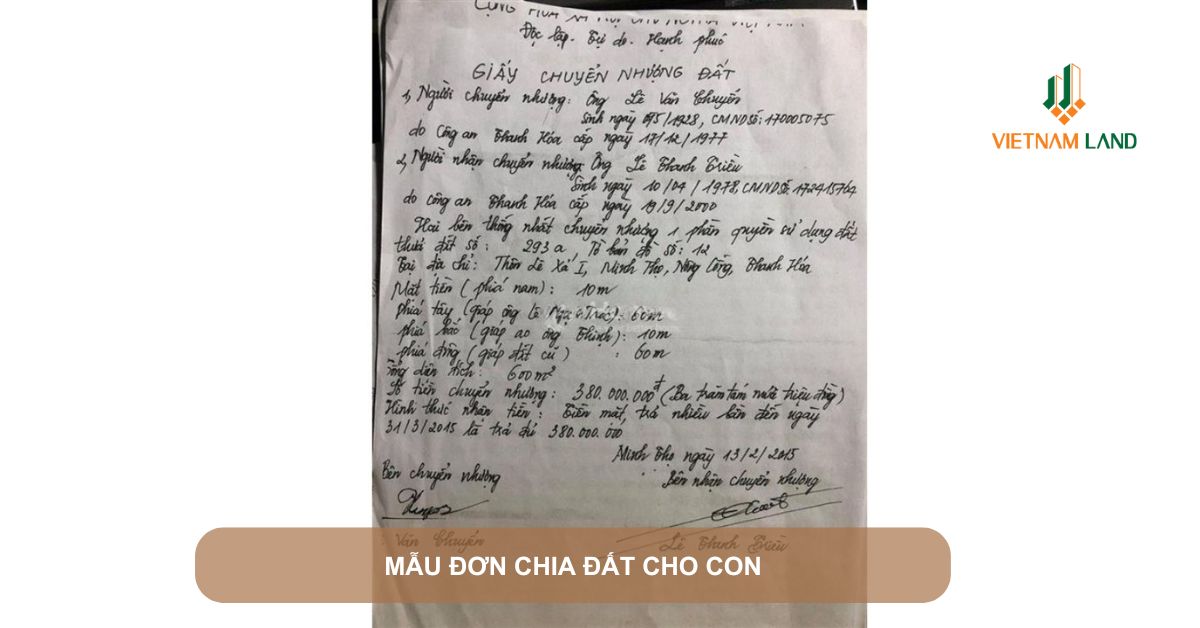 CỘNG HÒA XÃ HỘI CHỦ NGHĨA VIỆT NAM
Độc lập - Tự do - Hạnh phúc
GIẤY CHUYỂN NHƯỢNG ĐẤT
1, Người chuyển nhượng: Ông Lê Văn Chuyến
Sinh ngày /1928, CMND Số: 170005075
do Công an Thanh Hóa cấp ngày 17/12/1977
2, Người nhận chuyển nhượng: Ông Lê Thanh Triều
Sinh ngày 10/04/1978, CMND Số: 172415764
do công an Thanh Hóa cấp ngày 19/9/2000
Hai bên thống nhất chuyển nhượng 1 phần quyền sử dụng đất
thửa đất số: 293a, Tờ bản đồ số: 12
Tại địa chỉ: Thôn Lê Xá I, Minh Thọ, Nông Cống, Thanh Hóa
Mặt tiền (phía nam): 10m
phía tây (giáp ông Lê): 60m
phía bắc (giáp ao ông Thinh): 10m
phía đông (giáp đất cũ): 60m
Tổng diện tích: 600m²
Số tiền chuyển nhượng: 380.000.000đ (Ba trăm tám mươi triệu đồng)
Hình thức nhận tiền: Tiền mặt, trả nhiều lần đến ngày
31/3/2015 là trả đủ 380.000.000
Minh Thọ ngày 13/2/2015
Bên chuyển nhượng
Bên nhận chuyển nhượng
Văn Chuyến
Lê Thanh Triều
MẪU ĐƠN CHIA ĐẤT CHO CON
VIETNAM LAND